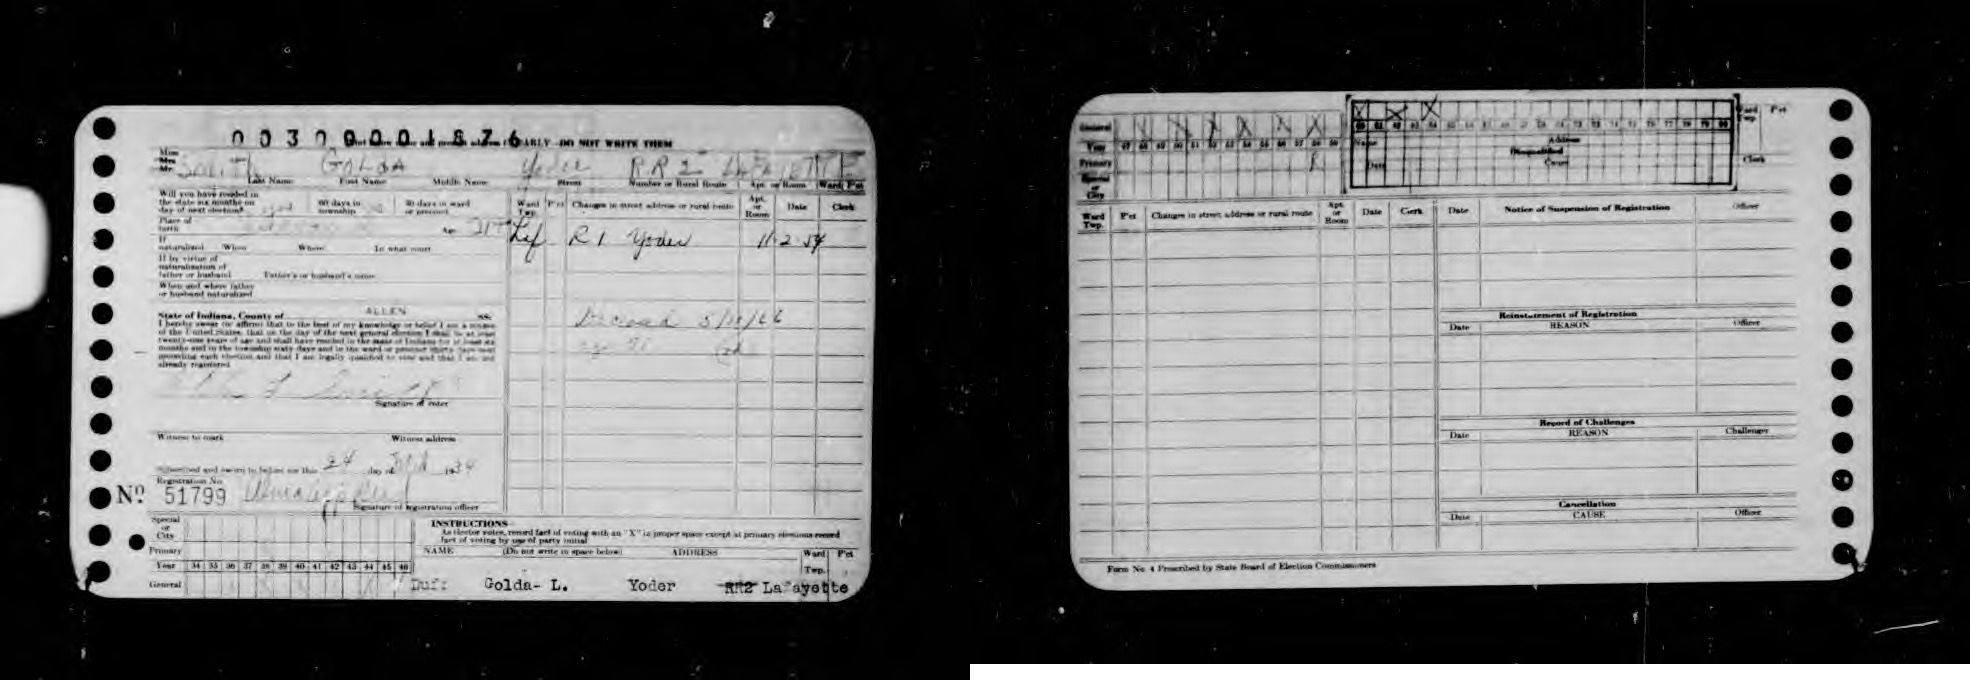 0030001876
Print below name and present address CLEARLY—DO NOT WRITE THEM
Miss
Mrs.
Mr.
GOLDA Yoder R.R 2 LAFAYETTE
Last Name First Name Middle Name Street Number or Rural Route Apt. or Room Ward P'ct
Will you have resided in
the state six months on
day of next election? yes
60 days in
township
30 days in ward
or precinct
Place of
birth
Age 21+
If
naturalized When Where In what court
If by virtue of
naturalization of
father or husband Father's or husband's name
When and where father
or husband naturalized
State of Indiana, County of ALLEN ss:
I hereby swear (or affirm) that to the best of my knowledge or belief I am a citizen
of the United States; that on the day of the next general election I shall be at least
twenty-one years of age and shall have resided in the state of Indiana for at least six
months and in the township sixty days and in the ward or precinct thirty days next
preceding such election and that I am legally qualified to vote and that I am not
already registered.
Signature of voter
Witness to mark Witness address
Subscribed and sworn to before me this 24 day of 1934
Registration No.
Nº 51799
Signature of registration officer
Ward
Twp. P'ct Changes in street address or rural route Apt.
or
Room Date Clerk
Laf R 1 Yoder 11-2-54
Deceased 5/ /66
Special
or
City
Primary
Year 34 35 36 37 38 39 40 41 42 43 44 45 46
General
INSTRUCTIONS
As elector votes, record fact of voting with an "X" in proper space except at primary elections record
fact of voting by use of party initial
NAME (Do not write in space below) ADDRESS Ward
Twp. P'ct
Golda- L. Yoder RR2 Lafayette
General X X X X X X
Year 47 48 49 50 51 52 53 54 55 56 57 58 59
Primary R
Special
or
City
X X X
60 61 62 63 64 65 66 67 68 69 70 71 72 73 74 75 76 77 78 79 80
Name Address
Disqualified
Date Cause
Ward
Twp. P'ct
Clerk
Ward
Twp. P'ct Changes in street address or rural route Apt.
or
Room Date Clerk
Date Notice of Suspension of Registration Officer
Reinstatement of Registration
Date REASON Officer
Record of Challenges
Date REASON Challenger
Cancellation
Date CAUSE Officer
Form No. 4 Prescribed by State Board of Election Commissioners